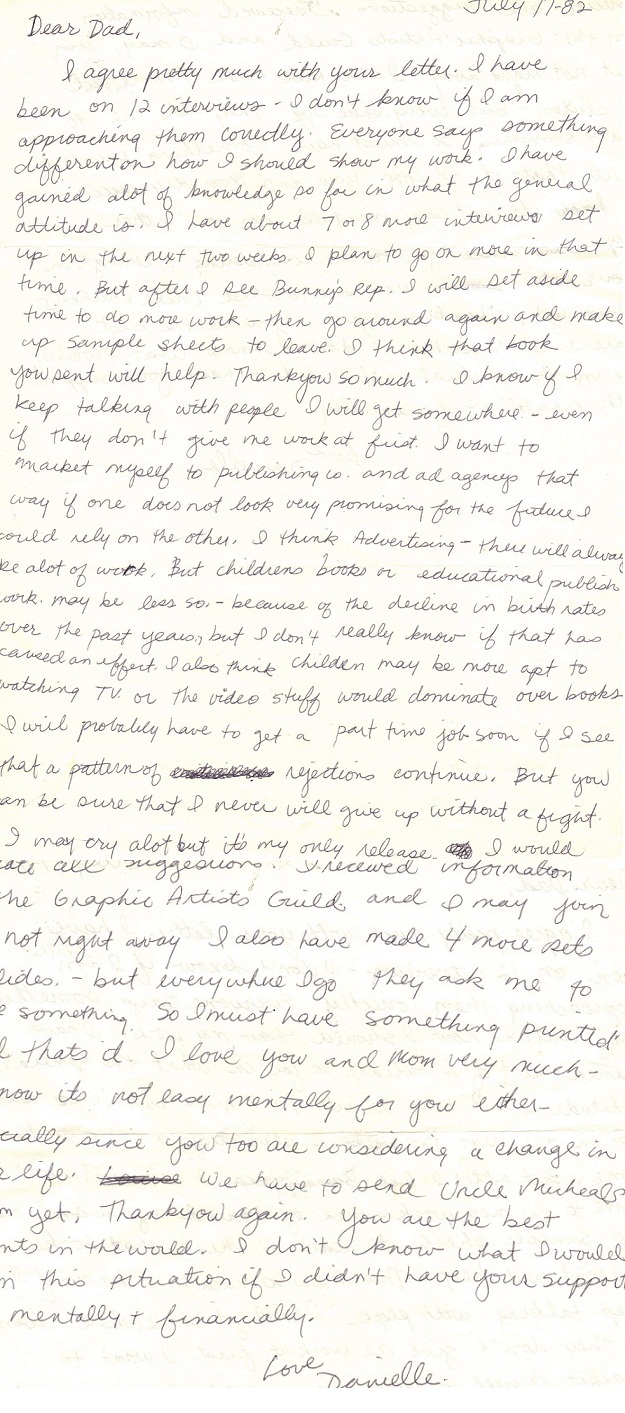 July 11-82
Dear Dad,
I agree pretty much with your letter. I have
been on 12 interviews - I don't know if I am
approaching them correctly. Everyone says something
different on how I should show my work. I have
gained alot of knowledge so far in what the general
attitude is. I have about 7 or 8 more interviews set
up in the next two weeks. I plan to go on more in that
time. But after I see Bunny's Rep. I will set aside
time to do more work - then go around again and make
up sample sheets to leave. I think that book
you sent will help. Thankyou so much. I know if I
keep talking with people I will get somewhere - even
if they don't give me work at first. I want to
market myself to publishing co. and ad agencys that
way if one does not look very promising for the future I
could rely on the other. I think Advertising - there will alway
be alot of work. But childrens books or educational publish
work. may be less so. - because of the decline in birth rates
over the past years, but I don't really know if that has
caused an effect. I also think children may be more apt to
watching TV. or the video stuff would dominate over books
I will probably have to get a part time job soon if I see
that a pattern of rejections continue. But you
an be sure that I never will give up without a fight.
I may cry alot but it's my only release. I would
ate all suggestions. I received information
he Graphic Artists Guild. and I may join
not right away I also have made 4 more sets
lides. - but everywhere I go they ask me to
e something. So I must have something printed
l thats'd. I love you and Mom very much -
now its not easy mentally for you either -
cially since you too are considering a change in
r life. We have to send Uncle Micheals
m yet, Thankyou again. You are the best
nts in the world. I don't know what I would
n this situation if I didn't have your support
mentally + financially.
Love
Danielle.